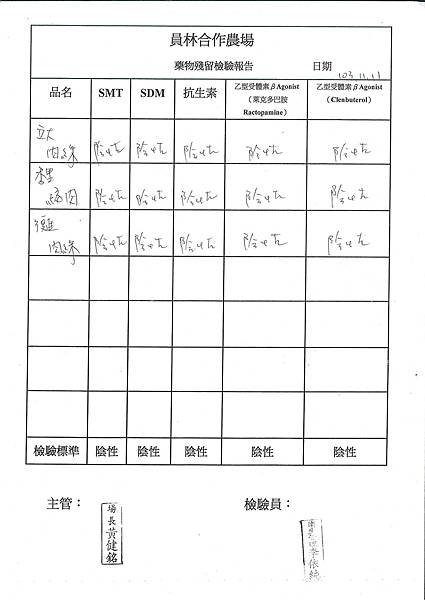 員林合作農場
藥物殘留檢驗報告 日期 103.11.11
品名 SMT SDM 抗生素 乙型受體素βAgonist（萊克多巴胺 Ractopamine） 乙型受體素βAgonist (Clenbuterol)
立大
肉絲 陰性 陰性 陰性 陰性 陰性
絞肉 陰性 陰性 陰性 陰性 陰性
肉絲 陰性 陰性 陰性 陰性 陰性
檢驗標準 陰性 陰性 陰性 陰性 陰性
主管： 檢驗員：
場長黃健銘